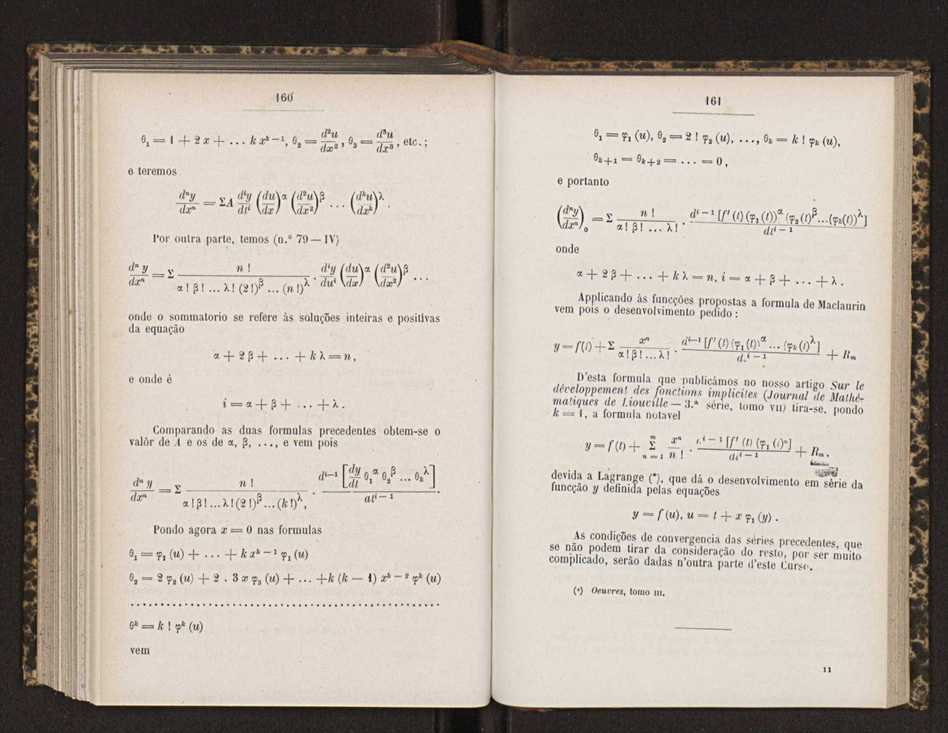 160
θ₁ = 1 + 2 x + ... k xᵏ⁻¹, θ₂ = d²u/dx², θ₃ = d³u/dx³, etc.;
e teremos
dⁿy/dxⁿ = ΣA dⁱy/dtⁱ (du/dx)^α (d²u/dx²)^β ... (dᵏu/dxᵏ)^λ .
Por outra parte, temos (n.º 79 — IV)
dⁿ y/dxⁿ = Σ n !/(α ! β ! ... λ ! (2 !)^β ... (n !)^λ) · dⁱy/duⁱ (du/dx)^α (d²u/dx²)^β ...
onde o sommatorio se refere ás soluções inteiras e positivas
da equação
α + 2 β + ... + k λ = n,
e onde é
i = α + β + ... + λ .
Comparando as duas formulas precedentes obtem-se o
valôr de A e os de α, β, ..., e vem pois
dⁿ y/dxⁿ = Σ n !/(α ! β ! ... λ ! (2 !)^β ... (k !)^λ, · dⁱ⁻¹ [dy/dt θ₁^α θ₂^β ... θₖ^λ]/dtⁱ⁻¹ .
Pondo agora x = 0 nas formulas
θ₁ = φ₁ (u) + ... + k xᵏ⁻¹ φ₁ (u)
θ₂ = 2 φ₂ (u) + 2 . 3 x φ₃ (u) + ... + k (k — 1) xᵏ⁻² φᵏ (u)
..................................................
θᵏ = k ! φᵏ (u)
vem
161
θ₁ = φ₁ (u), θ₂ = 2 ! φ₂ (u), ..., θₖ = k ! φₖ (u),
θₖ₊₁ = θₖ₊₂ = ... = 0,
e portanto
(dⁿy/dxⁿ)₀ = Σ n !/(α ! β ! ... λ !) · dⁱ⁻¹ [f′ (t) (φ₁ (t))^α (φ₂ (t)^β...(φₖ(t))^λ]/dtⁱ⁻¹
onde
α + 2 β + ... + k λ = n, i = α + β + ... + λ .
Applicando ás funcções propostas a formula de Maclaurin
vem pois o desenvolvimento pedido :
y = f(t) + Σ xⁿ/(α ! β ! ... λ !) · dⁱ⁻¹ [f′ (t) (φ₁ (t)^α ... (φₖ (t)^λ]/d.ⁱ⁻¹ + Rₙ
D'esta formula que publicámos no nosso artigo Sur le
développement des fonctions implicites (Journal de Mathé-
matiques de Liouville — 3.ª série, tomo VII) tira-se, pondo
k = 1, a formula notavel
y = f (t) + Σ (n = 1, m) xⁿ/n ! · ⁱ⁻¹ [f′ (t) (φ₁ (t)ⁿ]/dtⁱ⁻¹ + Rₙ,
devida a Lagrange (*), que dá o desenvolvimento em série da
funcção y definida pelas equações
y = f (u), u = t + x φ₁ (y) .
As condições de convergencia das séries precedentes, que
se não podem tirar da consideração do resto, por ser muito
complicado, serão dadas n'outra parte d'este Curso.
(*) Oeuvres, tomo III.
11